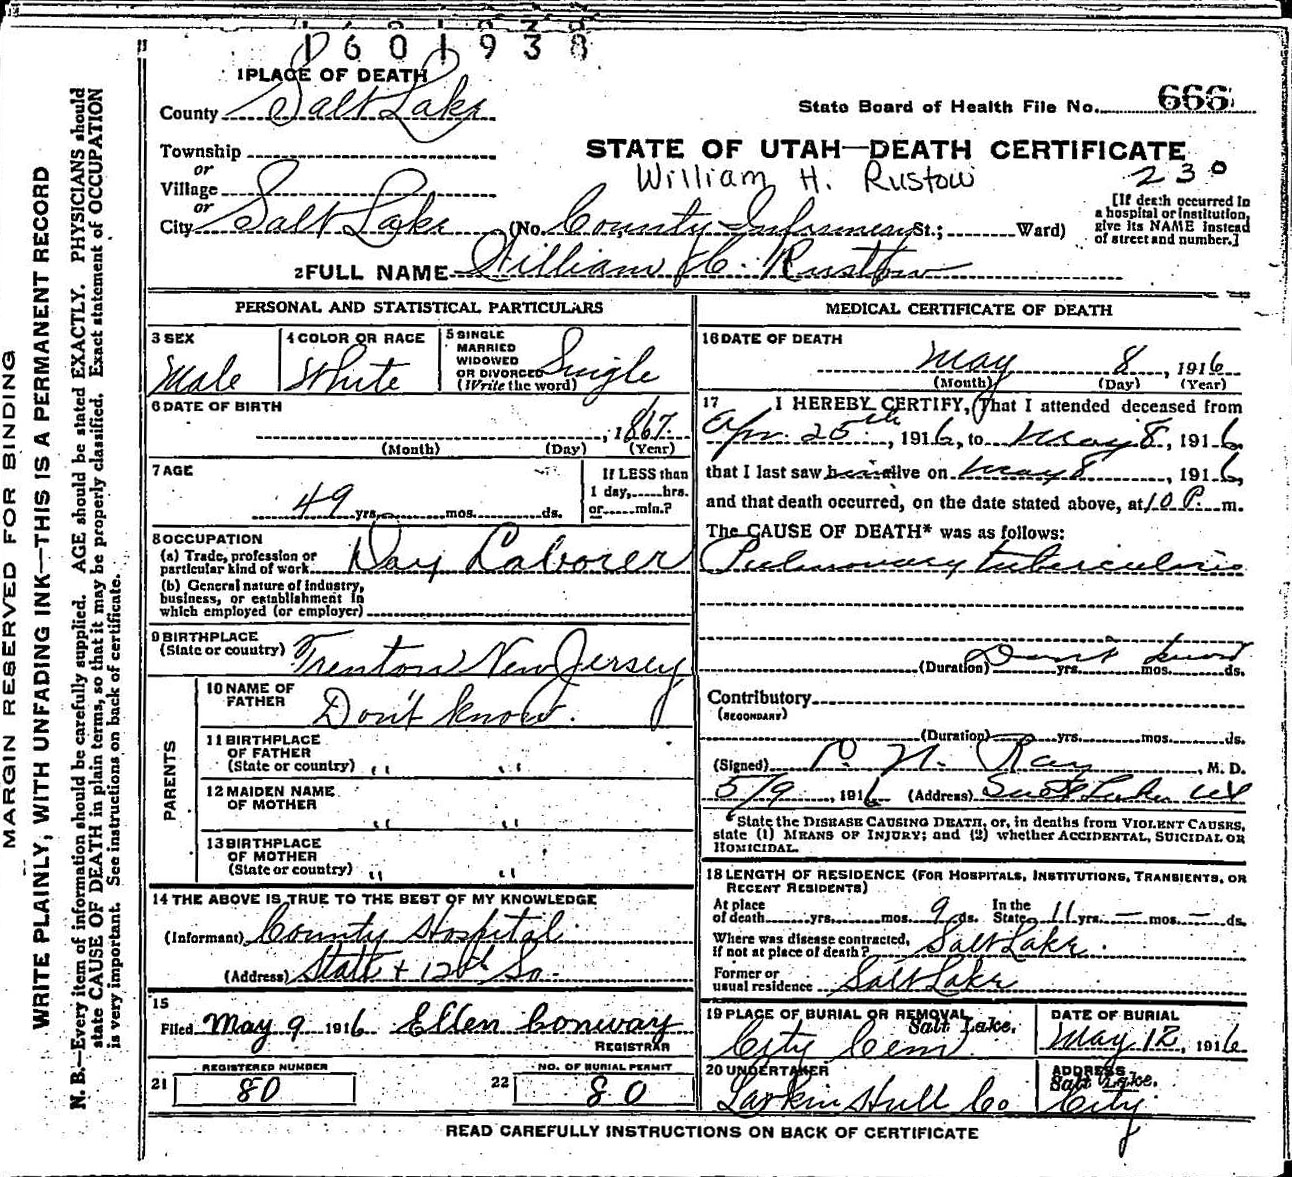 1601938
1 PLACE OF DEATH
County Salt Lake
State Board of Health File No. 666
Township
or
Village
or
City Salt Lake (No. County Infirmary St.; Ward)
STATE OF UTAH—DEATH CERTIFICATE
William H. Rustow 230
[If death occurred in
a hospital or institution,
give its NAME instead
of street and number.]
2 FULL NAME William H. Rustow
PERSONAL AND STATISTICAL PARTICULARS
3 SEX
Male
4 COLOR OR RACE
White
5 SINGLE
MARRIED
WIDOWED
OR DIVORCED
(Write the word)
Single
6 DATE OF BIRTH
, 1867.
(Month) (Day) (Year)
7 AGE
49 yrs. mos. ds.
If LESS than
1 day, hrs.
or min.?
8 OCCUPATION
(a) Trade, profession or
particular kind of work Day Laborer
(b) General nature of industry,
business, or establishment in
which employed (or employer)
9 BIRTHPLACE
(State or country) Trenton New Jersey
PARENTS
10 NAME OF
FATHER
Don't know.
11 BIRTHPLACE
OF FATHER
(State or country) " "
12 MAIDEN NAME
OF MOTHER
" "
13 BIRTHPLACE
OF MOTHER
(State or country) " "
14 THE ABOVE IS TRUE TO THE BEST OF MY KNOWLEDGE
(Informant) County Hospital
(Address) State + 12th So.
15
Filed May 9 1916 Ellen Conway
REGISTRAR
REGISTERED NUMBER
21 80
NO. OF BURIAL PERMIT
22 80
MEDICAL CERTIFICATE OF DEATH
16 DATE OF DEATH
May 8, 1916
(Month) (Day) (Year)
17 I HEREBY CERTIFY, That I attended deceased from
Apr. 25th, 1916, to May 8, 1916,
that I last saw him alive on May 8, 1916,
and that death occurred, on the date stated above, at 10 P. m.
The CAUSE OF DEATH* was as follows:
Pulmonary tuberculosis
(Duration) Don't know yrs. mos. ds.
Contributory
(SECONDARY)
(Duration) yrs. mos. ds.
(Signed) N. Ray, M. D.
5/9, 1916 (Address) Salt Lake
*State the DISEASE CAUSING DEATH, or, in deaths from VIOLENT CAUSES,
state (1) MEANS OF INJURY; and (2) whether ACCIDENTAL, SUICIDAL OR
HOMICIDAL.
18 LENGTH OF RESIDENCE (FOR HOSPITALS, INSTITUTIONS, TRANSIENTS, OR
RECENT RESIDENTS)
At place
of death yrs. mos. 9 ds.
In the
State 11 yrs. — mos. — ds.
Where was disease contracted,
if not at place of death? Salt Lake.
Former or
usual residence Salt Lake
19 PLACE OF BURIAL OR REMOVAL
Salt Lake.
City Cem
DATE OF BURIAL
May 12, 1916
20 UNDERTAKER
Larkin Hull Co
ADDRESS
Salt Lake.
City
READ CAREFULLY INSTRUCTIONS ON BACK OF CERTIFICATE
MARGIN RESERVED FOR BINDING
WRITE PLAINLY, WITH UNFADING INK—THIS IS A PERMANENT RECORD
N. B.—Every item of information should be carefully supplied. AGE should be stated EXACTLY. PHYSICIANS should
state CAUSE OF DEATH in plain terms, so that it may be properly classified. Exact statement of OCCUPATION
is very important. See instructions on back of certificate.